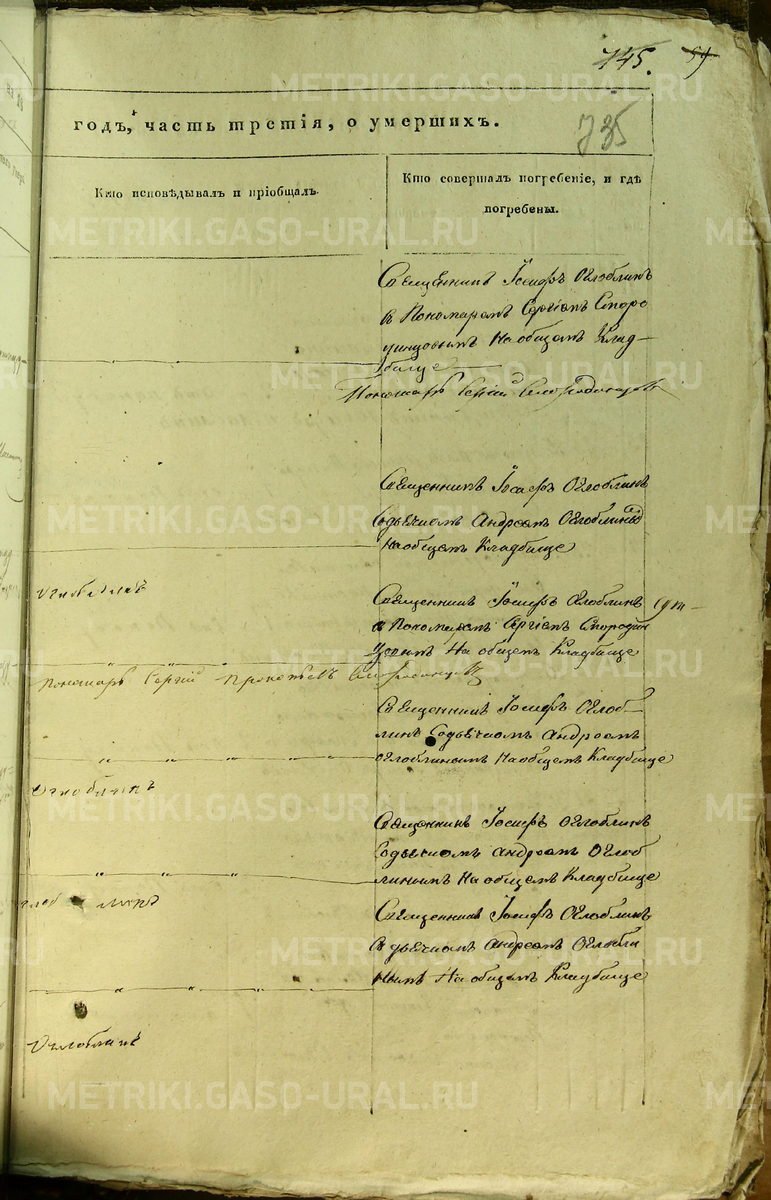 145. 59
годъ, часть третія, о умершихъ.
735
Кто исповѣдывалъ и пріобщалъ.
Кто совершалъ погребеніе, и гдѣ
погребены.
Священникъ Іосифъ Оглоблинъ
с Пономаремъ Сергіемъ
На общемъ Клад-
бище
Пономарь Сергій
Священникъ Іосифъ Оглоблинъ
Содьячкомъ Андреемъ Оглоблинымъ
На общемъ Кладбище
Оглоблинъ
Священникъ Іосифъ Оглоблинъ
с Пономаремъ Сергіемъ
На общемъ Кладбище
Пономарь Сергій Прокопьевъ
Священникъ Іосифъ Оглоб-
линъ Содьячкомъ Андреемъ
Оглоблинымъ На общемъ Кладбище
Оглоблинъ
Священникъ Іосифъ Оглоблинъ
Содьячкомъ Андреемъ Оглоб
линымъ На общемъ Кладбище
Священникъ Іосифъ Оглоблинъ
Содьячкомъ Андреемъ Оглобли
нымъ На общемъ Кладбище
Оглоблинъ
METRIKI.GASO-URAL.RU